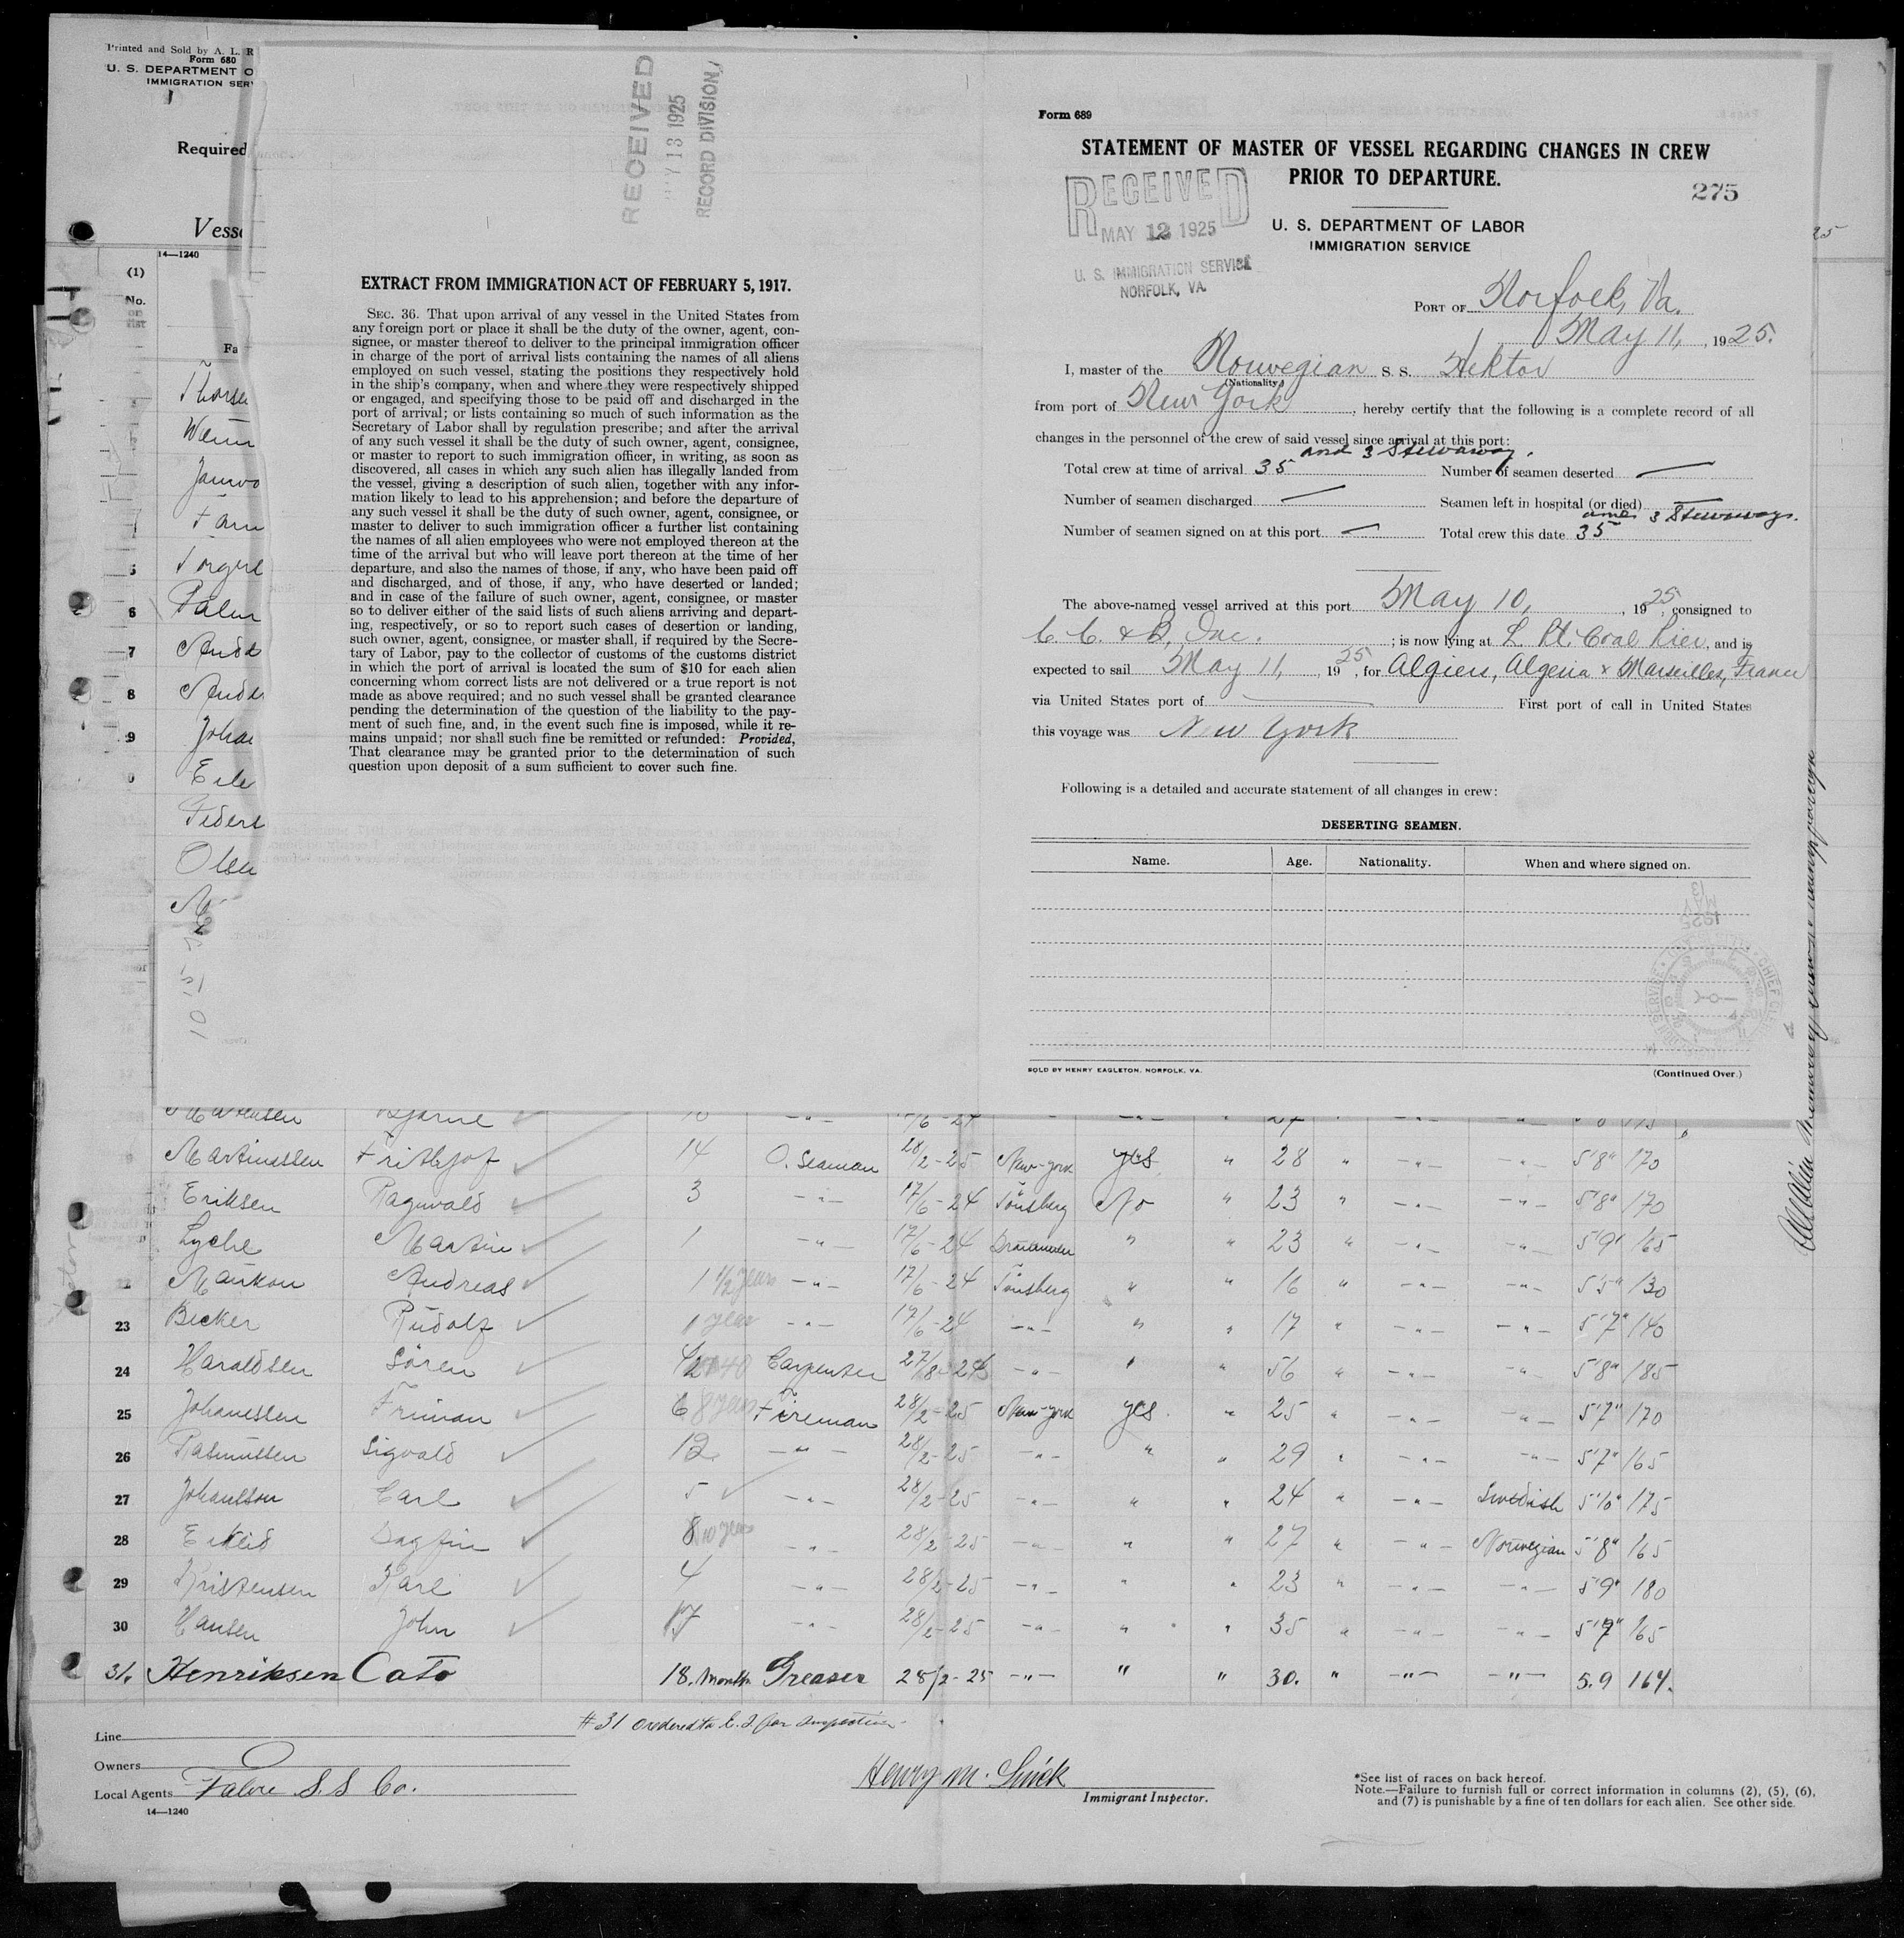 Printed and Sold by A. L. R
Form 680
U. S. DEPARTMENT O
IMMIGRATION SER
Required
Vesse
14—1240
(1)
No.
on
list
Fa
Thorse
Warn
Farn
Torgul
6 Palm
7 Andd
8 Ande
9 Johan
Eile
Peders
Olsen
RECEIVED
13 1925
RECORD DIVISION
EXTRACT FROM IMMIGRATION ACT OF FEBRUARY 5, 1917.
SEC. 36. That upon arrival of any vessel in the United States from
any foreign port or place it shall be the duty of the owner, agent, con-
signee, or master thereof to deliver to the principal immigration officer
in charge of the port of arrival lists containing the names of all aliens
employed on such vessel, stating the positions they respectively hold
in the ship's company, when and where they were respectively shipped
or engaged, and specifying those to be paid off and discharged in the
port of arrival; or lists containing so much of such information as the
Secretary of Labor shall by regulation prescribe; and after the arrival
of any such vessel it shall be the duty of such owner, agent, consignee,
or master to report to such immigration officer, in writing, as soon as
discovered, all cases in which any such alien has illegally landed from
the vessel, giving a description of such alien, together with any infor-
mation likely to lead to his apprehension; and before the departure of
any such vessel it shall be the duty of such owner, agent, consignee, or
master to deliver to such immigration officer a further list containing
the names of all alien employees who were not employed thereon at the
time of the arrival but who will leave port thereon at the time of her
departure, and also the names of those, if any, who have been paid off
and discharged, and of those, if any, who have deserted or landed;
and in case of the failure of such owner, agent, consignee, or master
so to deliver either of the said lists of such aliens arriving and depart-
ing, respectively, or so to report such cases of desertion or landing,
such owner, agent, consignee, or master shall, if required by the Secre-
tary of Labor, pay to the collector of customs of the customs district
in which the port of arrival is located the sum of $10 for each alien
concerning whom correct lists are not delivered or a true report is not
made as above required; and no such vessel shall be granted clearance
pending the determination of the question of the liability to the pay-
ment of such fine, and, in the event such fine is imposed, while it re-
mains unpaid; nor shall such fine be remitted or refunded: Provided,
That clearance may be granted prior to the determination of such
question upon deposit of a sum sufficient to cover such fine.
Form 689
STATEMENT OF MASTER OF VESSEL REGARDING CHANGES IN CREW
PRIOR TO DEPARTURE.
275
RECEIVED
MAY 12 1925
U. S. IMMIGRATION SERVICE
NORFOLK, VA.
U. S. DEPARTMENT OF LABOR
IMMIGRATION SERVICE
PORT OF Norfolk, Va.
May 11, 1925.
I, master of the Norwegian S. S. Hektor
(Nationality)
from port of New York, hereby certify that the following is a complete record of all
changes in the personnel of the crew of said vessel since arrival at this port:
and 3 Stowaways.
Total crew at time of arrival 35 Number of seamen deserted —
Number of seamen discharged — Seamen left in hospital (or died) —
and 3 Stowaways.
Number of seamen signed on at this port — Total crew this date 35
The above-named vessel arrived at this port May 10, 1925, consigned to
C. C. & B, Inc.; is now lying at L. Pt. Coal Pier, and is
expected to sail May 11, 1925, for Algiers, Algeria & Marseilles, France
via United States port of — First port of call in United States
this voyage was New York
Following is a detailed and accurate statement of all changes in crew:
DESERTING SEAMEN.
Name. Age. Nationality. When and where signed on.
1925
MAY
13
SOLD BY HENRY EAGLETON, NORFOLK, VA. (Continued Over.)
Bjarne 17/6-24 27
Martinssen Frithjof 14 O. Seaman 28/2-25 New-york yes " 28 " -"- -"- 5'8" 170
Eriksen Ragnvald 3 -"- 17/6-24 Tönsberg No " 23 " -"- -"- 5'8" 170
Lyche Martin 1 -"- 17/6-24 " " 23 " -"- -"- 5'9" 165
Andreas 1 1/2 years -"- 17/6-24 Tönsberg " " 16 " -"- -"- 5'5" 130
23 Becker Rudolf 1 year -"- 17/6-24 -"- " " 17 " -"- -"- 5'7" 140
24 Haraldsen Sören 40 Carpenter 27/8-24 -"- " " 56 " -"- -"- 5'8" 185
25 Johanessen Friman 6 8 years Fireman 28/2-25 New-york yes " 25 " -"- -"- 5'7" 170
26 Rasmussen Sigvald 12 -"- 28/2-25 -"- " " 29 " -"- -"- 5'7" 165
27 Johansson Carl 5 -"- 28/2-25 -"- " " 24 " -"- Swedish 5'10" 175
28 Dagfin 8 10 years -"- 28/2-25 -"- " " 27 " -"- Norwegian 5'8" 165
29 Kristensen Karl 4 -"- 28/2-25 -"- " " 23 " -"- -"- 5'9" 180
30 Hansen John 17 -"- 28/2-25 -"- " " 35 " -"- -"- 5'7" 165
31. Henriksen Cato 18. months Greaser 28/2-25 -"- " " 30. " -"- -"- 5.9 164.
#31 ordered to E. I. for inspection.
Line
Owners
Local Agents Fabre S. S Co.
14—1240
Henry M.
Immigrant Inspector.
*See list of races on back hereof.
Note.—Failure to furnish full or correct information in columns (2), (5), (6),
and (7) is punishable by a fine of ten dollars for each alien. See other side.